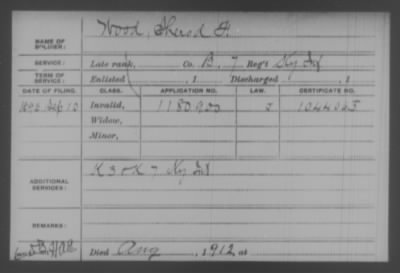 NAME OF SOLDIER: Wood, Sherod F.
SERVICE: Late rank, Co. B, 7 Reg't Ky Inf
TERM OF SERVICE: Enlisted , 1 Discharged , 1
DATE OF FILING. CLASS. APPLICATION NO. LAW. CERTIFICATE NO.
1896 Sep 10 Invalid, 1180900 1044025
Widow,
Minor,
ADDITIONAL SERVICES: K 3 7 Ky Inf
REMARKS:
Died Aug , 1912, at